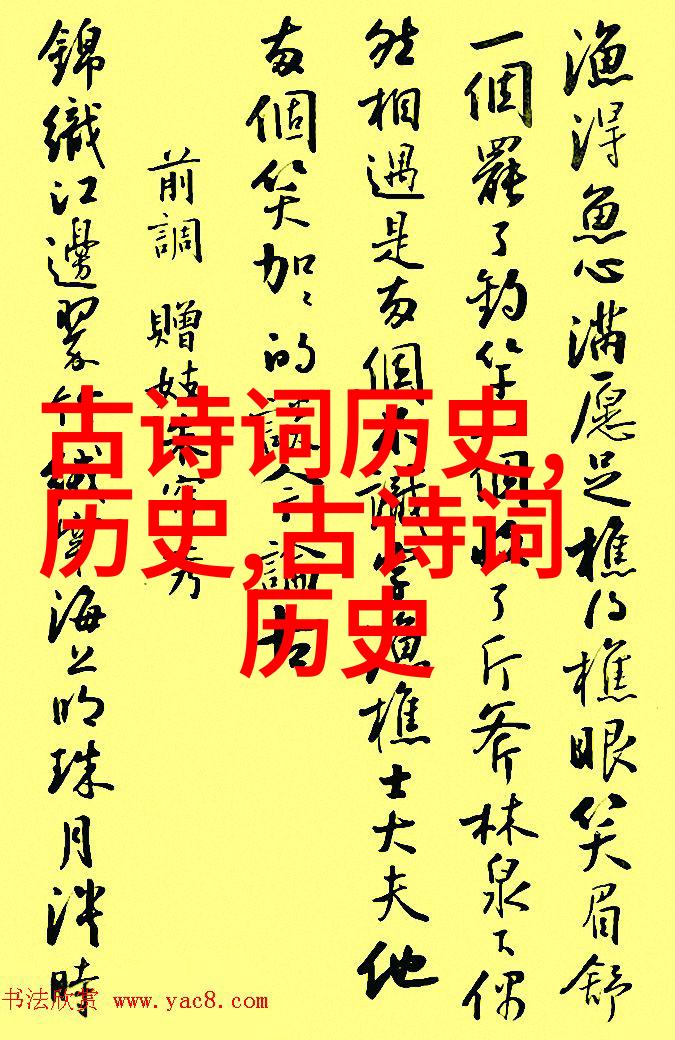 漁得魚心滿愿足樵得樵眼笑眉舒
一個罷了釣竿一個收了斤斧林泉下偶
然相遇是兩個不識字漁樵士大夫他
兩個笑加〻的談今論古
前調 贈姑朱秀
錦織江邊翠竹絨穿海上明珠月淡時
古诗词历史,
历史,古诗词
历史
书法欣赏 www.yac8.com